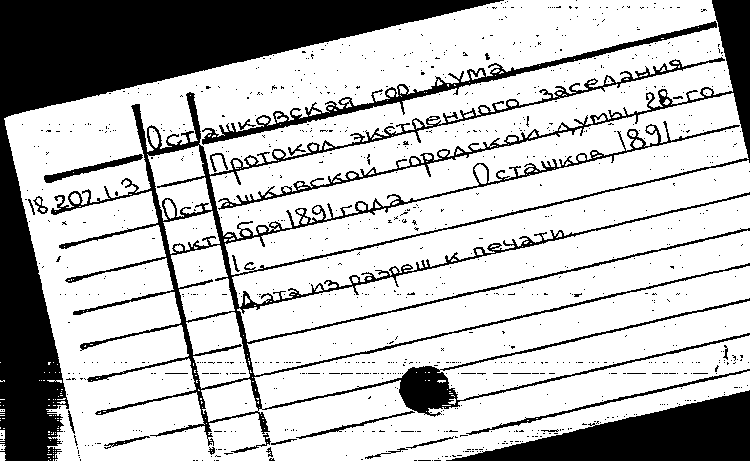 Осташковская гор. дума.
Протокол экстренного заседания
18.207.1.3 Осташковской городской думы, 28-го
октября 1891 года. Осташков, 1891.
1 с.
Дата из разреш к печати.